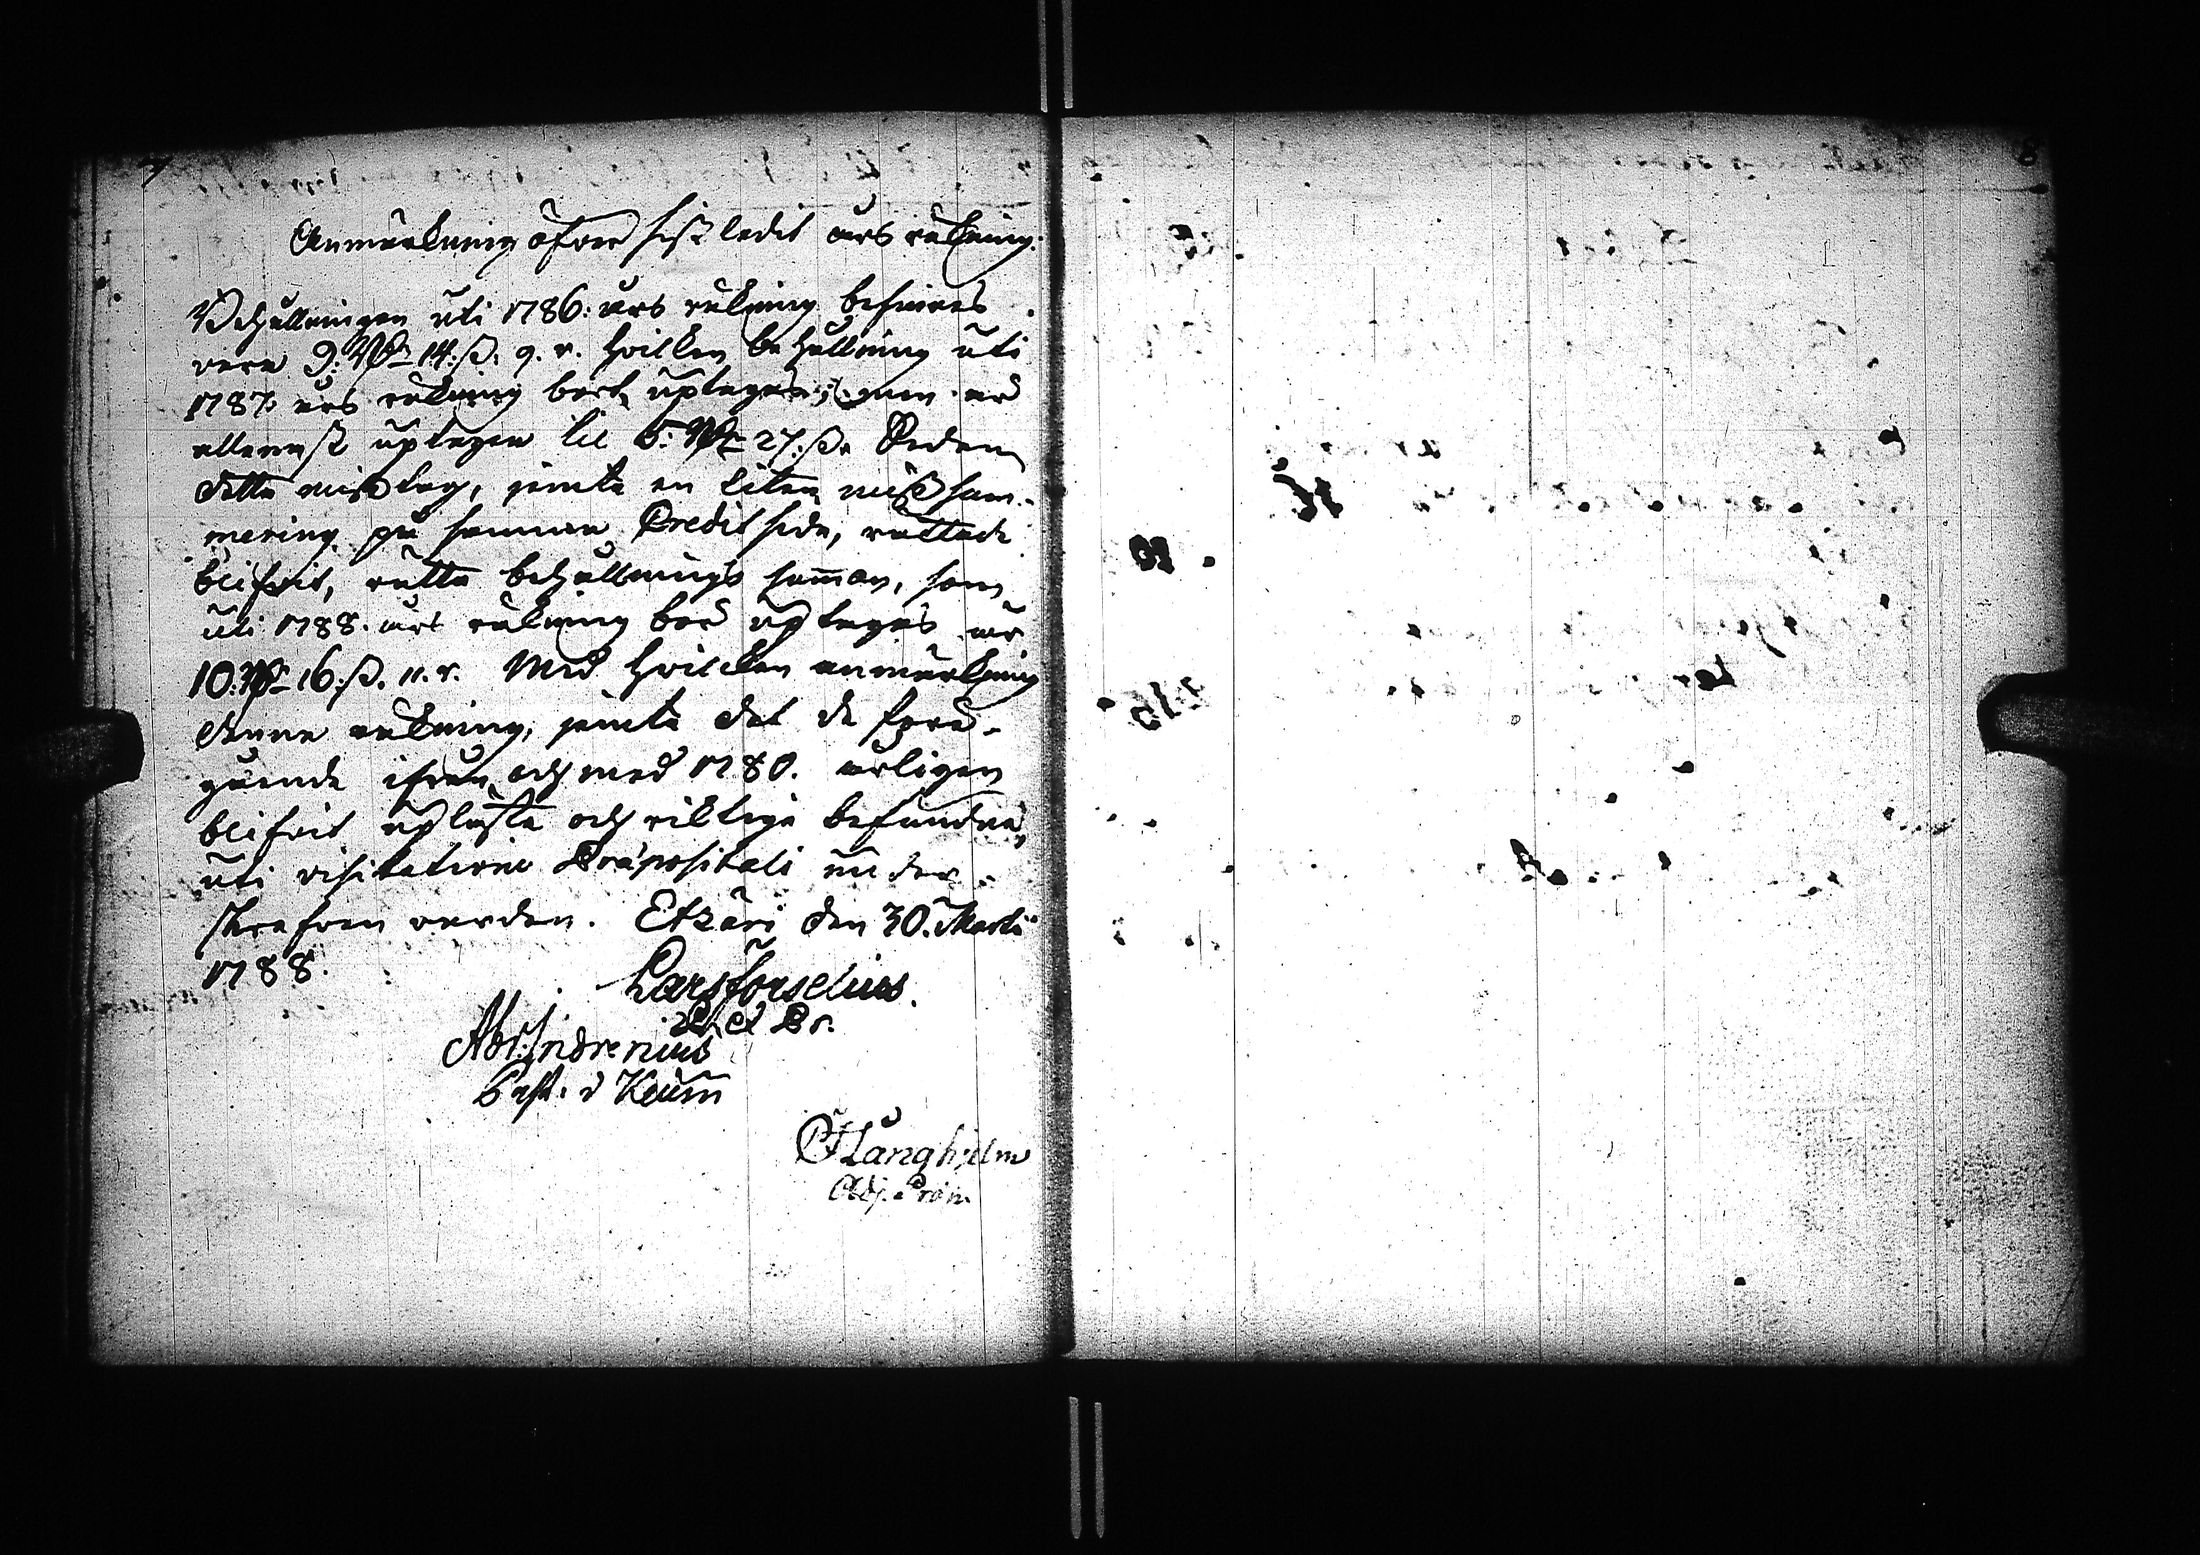 7
8
Anmärkning öfver sistledit års räkning.
Behållningen uti 1786: års räkning befinnes
vara 9: Rdr 14: ß. 9. r. hvilken behållning uti
1787: års räkning bort uptagas; men är
allenast uptagen til 5: Rdr 27: ß. Sedan
detta misstag, jemte en liten miss sum-
mering på samma Credit sida, rättade
blifvit, rätta behållnings summan, som
uti 1788. års räkning bör uptagas är
10: Rdr 16: ß. 11. r. Med hvilcken anmärkning
denna räkning, jemte det de före-
gående ifrån och med 1780. årligen
blifvit upläste och riktige befundne,
uti visitatione Præpositali under-
skrefven worden. Etzäri den 30. Martii
1788.
Lars Forselius.
P. et Pr.
Abr: Indrenius
Past. i Keuru
C F Långhjelm
Adj.